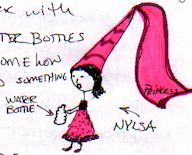 with
TER BOTTLES
OMEHOW
SOMETHING
WATER
BOTTLE
PRINCESS
NYLSA